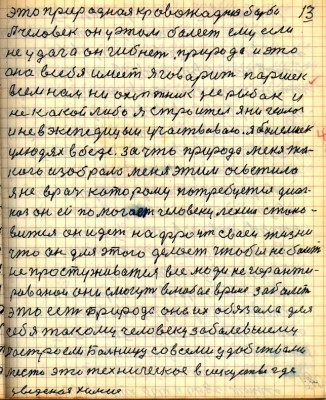 13
это природная кровожадна борьба
человек он у этом болеет ему если
не удача он гибнет природе и это
она в себя имеет я говарит паршек
всем нам ни охотник не рыбак и
не какой либо я строител я ни
и не в экспедиции участваваю. я
у людях в беде. за что природа меня та-
кого избрала меня этим осветило
я не врач которому потребуется диаг-
ноз он ей помогает человеку лехии стано-
вится он идет на фронт сваей жизни
что он для этого делает чтобы не болеть
не простуживатся все люди не горанти-
рованой они смогут в любое время заболеть
это есть природа она их обязала для
себя такому человеку заболевшему
построем Больницу со всеми удобствами
место это техническое в искуства где
введеная химие